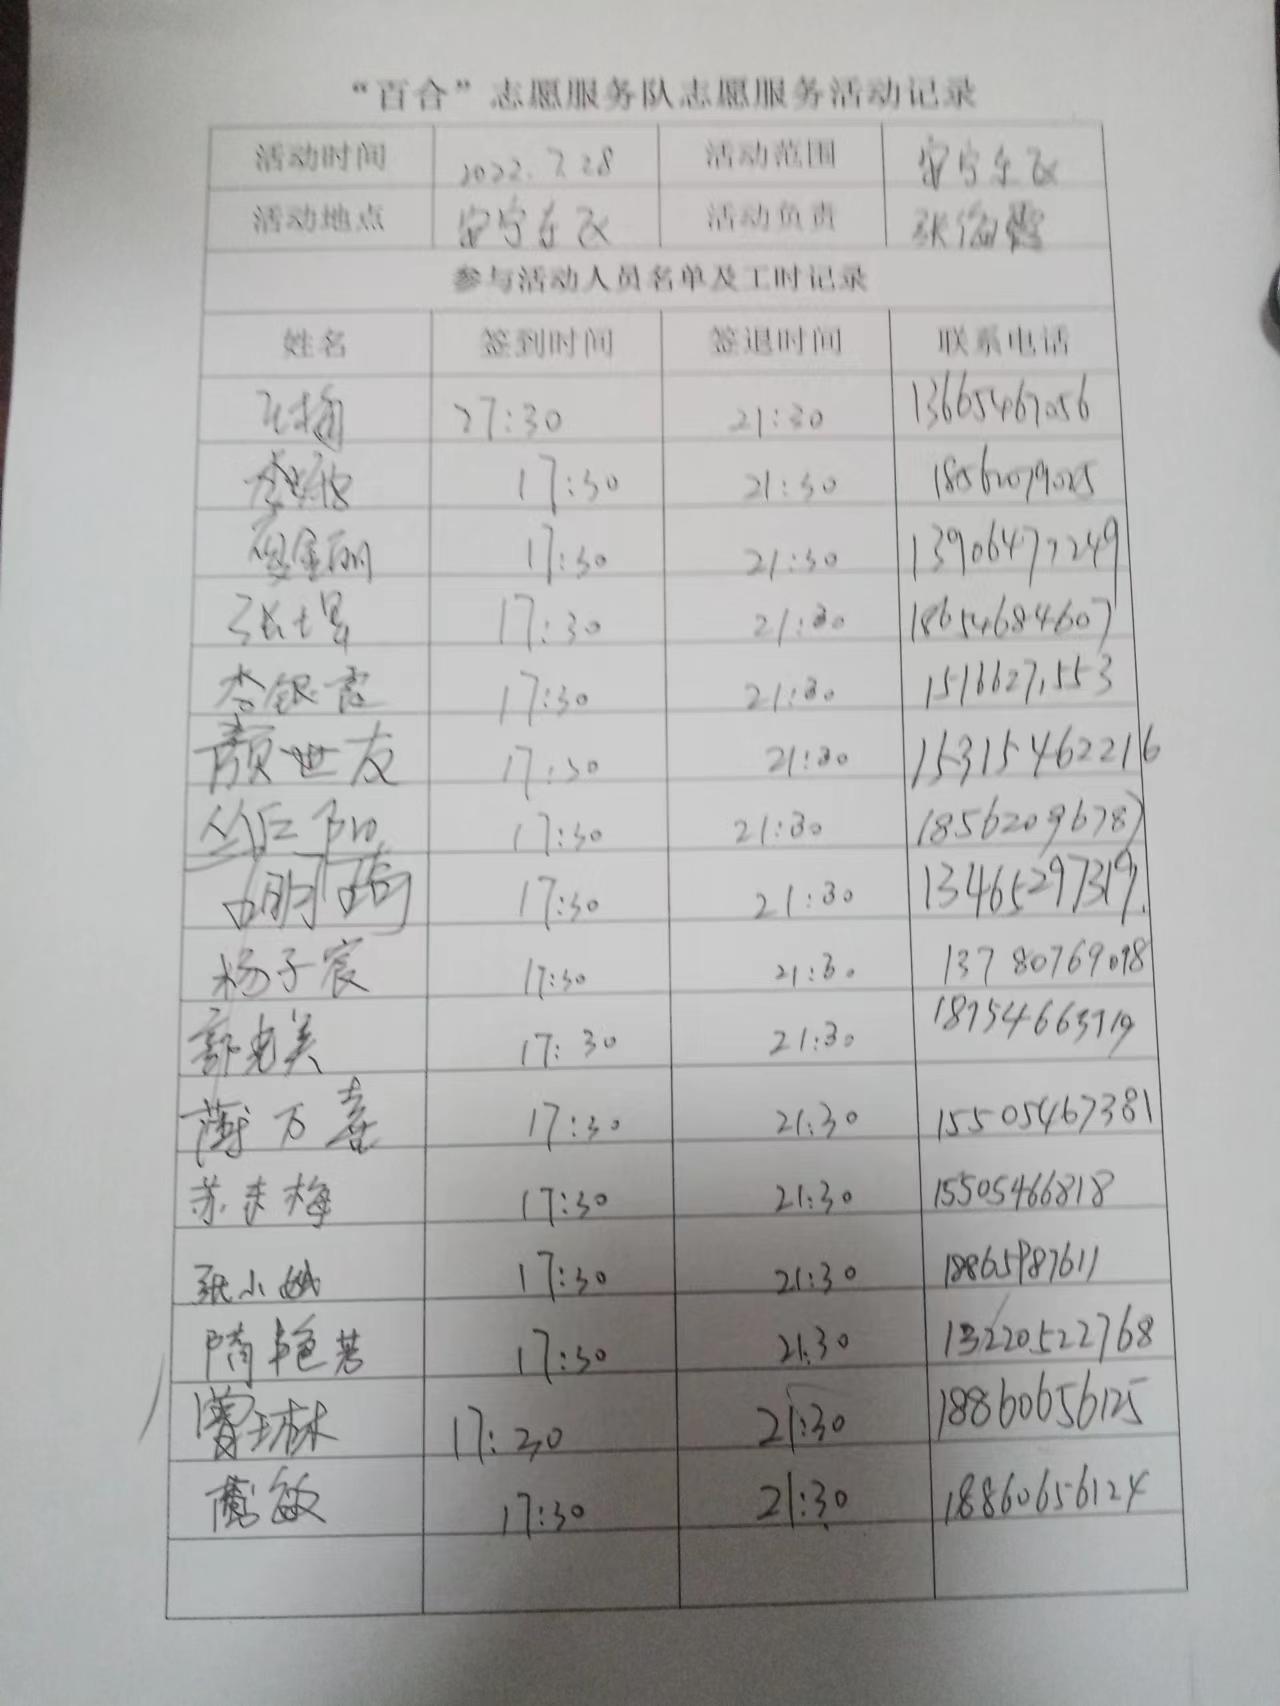 “百合”志愿服务队志愿服务活动记录
活动时间 2022.7.28 活动范围 安宁东区
活动地点 安宁东区 活动负责
参与活动人员名单及工时记录
姓名 签到时间 签退时间 联系电话
27:30 21:30 13665467056
17:30 21:30 18562079025
17:30 21:30 13906477249
17:30 21:30 18654684607
李银霞 17:30 21:30 15166271553
颜世友 17:30 21:30 15315462216
17:30 21:30 18562096787
胡 17:30 21:30 13465297319
杨子宸 17:30 21:30 13780769098
17:30 21:30 18754663719
薄万喜 17:30 21:30 15505467381
苏 梅 17:30 21:30 15505466818
张小 17:30 21:30 18865987611
隋艳芳 17:30 21:30 13220522768
曹玉林 17:30 21:30 18860656125
敏 17:30 21:30 18860656124